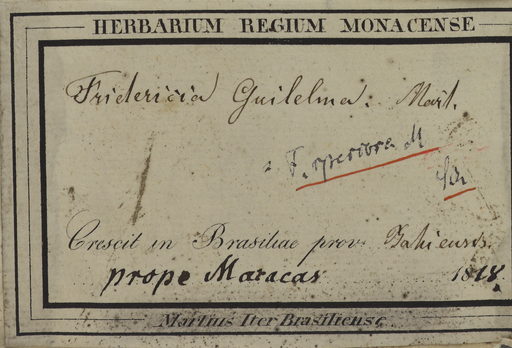 HERBARIUM REGIUM MONACENSE
Fridericia Guilelma. Mart.
F. speciosa M
Crescit in Brasiliae prov. Bahiensis.
prope Maracas 1818.
Martius Iter Brasiliense